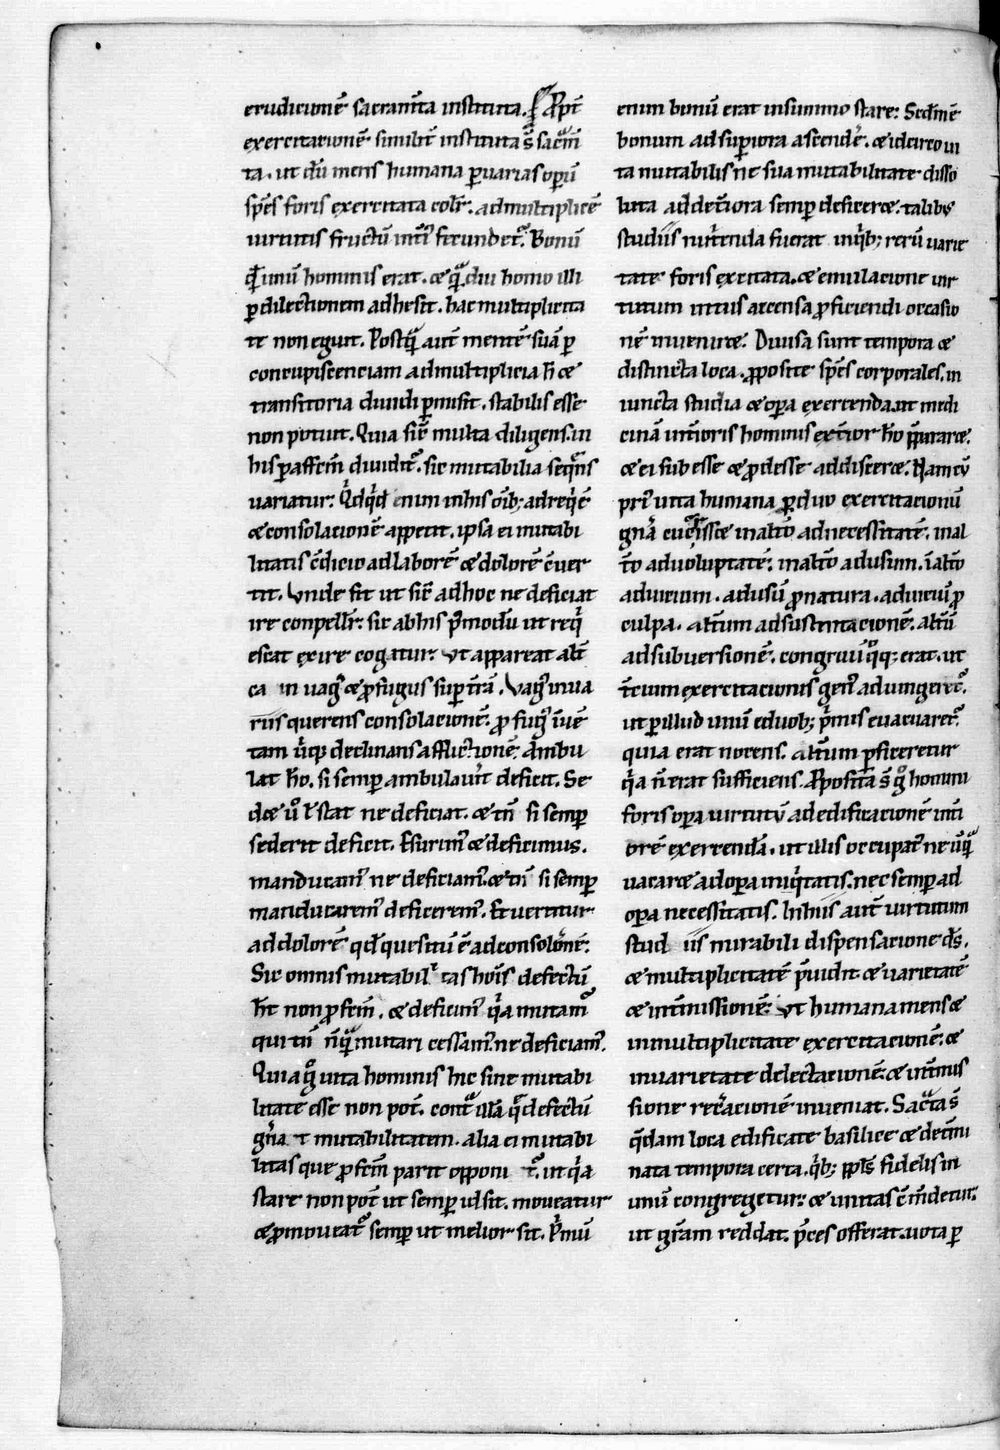 erudicionē sacramīta instituta. ꝓpt̄
exercitacionē similit̄ instituta s̄ sac̄m̄
ta. ut dū mens humana ꝑ uarias opū
sp̄es foris exercitata colit̄. ad multiplicē
uirtutis fructū int̄i fecundet᷑. Bonū
q̄ unū hominis erat. & q̄ diu homo illi
ꝑ dilectionem adhesit. hac multiplicita
te non eguit. Postq̄ aut̄ mentē suā ꝑ
concupiscenciam ad multiplicia h̄ &
transitoria diuidi ꝑmisit. stabilis esse
non potuit. Quia sic̄ multa diligens. in
his ꝑ affcm̄ diuidit᷑. sic mutabilia seq̄ns
uariatur. Qdq̄d enim in his oīb; ad reqē
& consolacionē appetit. ipsa ei mutabi
litatis c̄dicio ad laborē & dolorē c̄uer
tit. Vnde fit ut sic̄ ad hoc ne deficiat
ire conpellit᷑. sic ab his p̄modū ut reqi
escat exire cogatur. Vt appareat alt̄
ca in uag̕ & ꝓfugus sup t̄rā. Vag̕ in ua
riis querens consolacionē. ꝓfug̕ inuē
tam ubiq; declinans afflictionē. Ambu
lat h̄o. si semꝑ ambulau̕it deficit. Se
det u̕ l stat ne deficiat. & tn̄ si semꝑ
sederit deficit. Esurim̕ & deficimus.
manducam̕ ne deficiam̕. & tn̄ si semꝑ
manducarem̕ deficerem̕. Et uertitur
ad dolorē qd̄ quesitū ē ad consolōnē.
Sic omnis mutabilitas hoīs defectū
h̄t non ꝓfcm̄. & deficim̕ q̄a mutam᷑
qui tn̄ nūq̄ mutari cessam̕ ne deficiam̕.
Quia g̊ uita hominis hic sine mutabi
litate esse non pot̄. cont̄ illā q̄ defectū
gn̄at mutabilitatem. alia ei mutabi
litas que ꝓfcm̄ parit opponit᷑. ut q̄a
stare non pot̄ ut semꝑ id sit. moueatur
& ꝓmoueat᷑ semꝑ ut melior sit. P̄mū
enim bonū erat in summo stare. Scdm̄ ē
bonum ad suꝑiora ascendē. & idcirco ui
ta mutabilis ne sua mutabilitate disso
luta ad det̄iora semꝑ deficeret. talibꝰ
studiis nut̄ienda fuerat. in q̄b; rerū uarie
tate foris exercitata. & emulacione uir
tutum intus accensa ꝓficiendi occasio
nē inueniret. Diuisa sunt tempora &
distincta loca. ꝓposite sp̄es corporales. in
iuncta studia & oꝑa exercenda. ut medi
cinā int̄ioris hominis ext̄ior h̄o p̄pararet.
& ei subesse & ꝓdesse addisceret. Nam cū
pri̕ uita humana ꝑ duo exercitacionū
gn̄a cucurrisset in alt̄o ad necessitatē. in al
t̄o ad uoluptatē. in alt̄o ad usum. ī alt̄o
ad uicium. ad usū ꝓ natura. ad uiciū ꝓ
culpa. alt̄um ad sustentacionē. alt̄ū
ad subuersionē. congruū q̊q; erat. ut
t̄cium exercitacionis gen̕ adiungeret᷑.
ut ꝑ illud unū e duob; p̄mis euacuaret᷑.
quia erat nocens. alt̄um ꝑficeretur
q̄a n̄ erat sufficiens. Pposita s̄ g̊ homini
foris oꝑa uirtutū ad edificacionē int̄i
orē exercenda. ut illis occupat̕ ne u̅q̄
uacaret ad oꝑa iniq̄tatis. nec semꝑ ad
oꝑa necessitatis. In hiis aut̄ uirtutum
studiis mirabili dispensacione d̄s.
& multiplicitatē p̄uidit & uarietatē
& int̄missionē. Vt humana mens &
in multiplicitate exercitacionē. &
in uarietate delectacionē. & int̄mis
sione recreacionē inueniat. Sac̄ta s̄
q̄dam loca edificate basilice & det̄mi
nata tempora certa. q̄b; ppl̄s fidelis in
unū congregetur. & unitas c̄m̄detur.
ut gr̄am reddat. p̄ces offerat. uota ꝑ